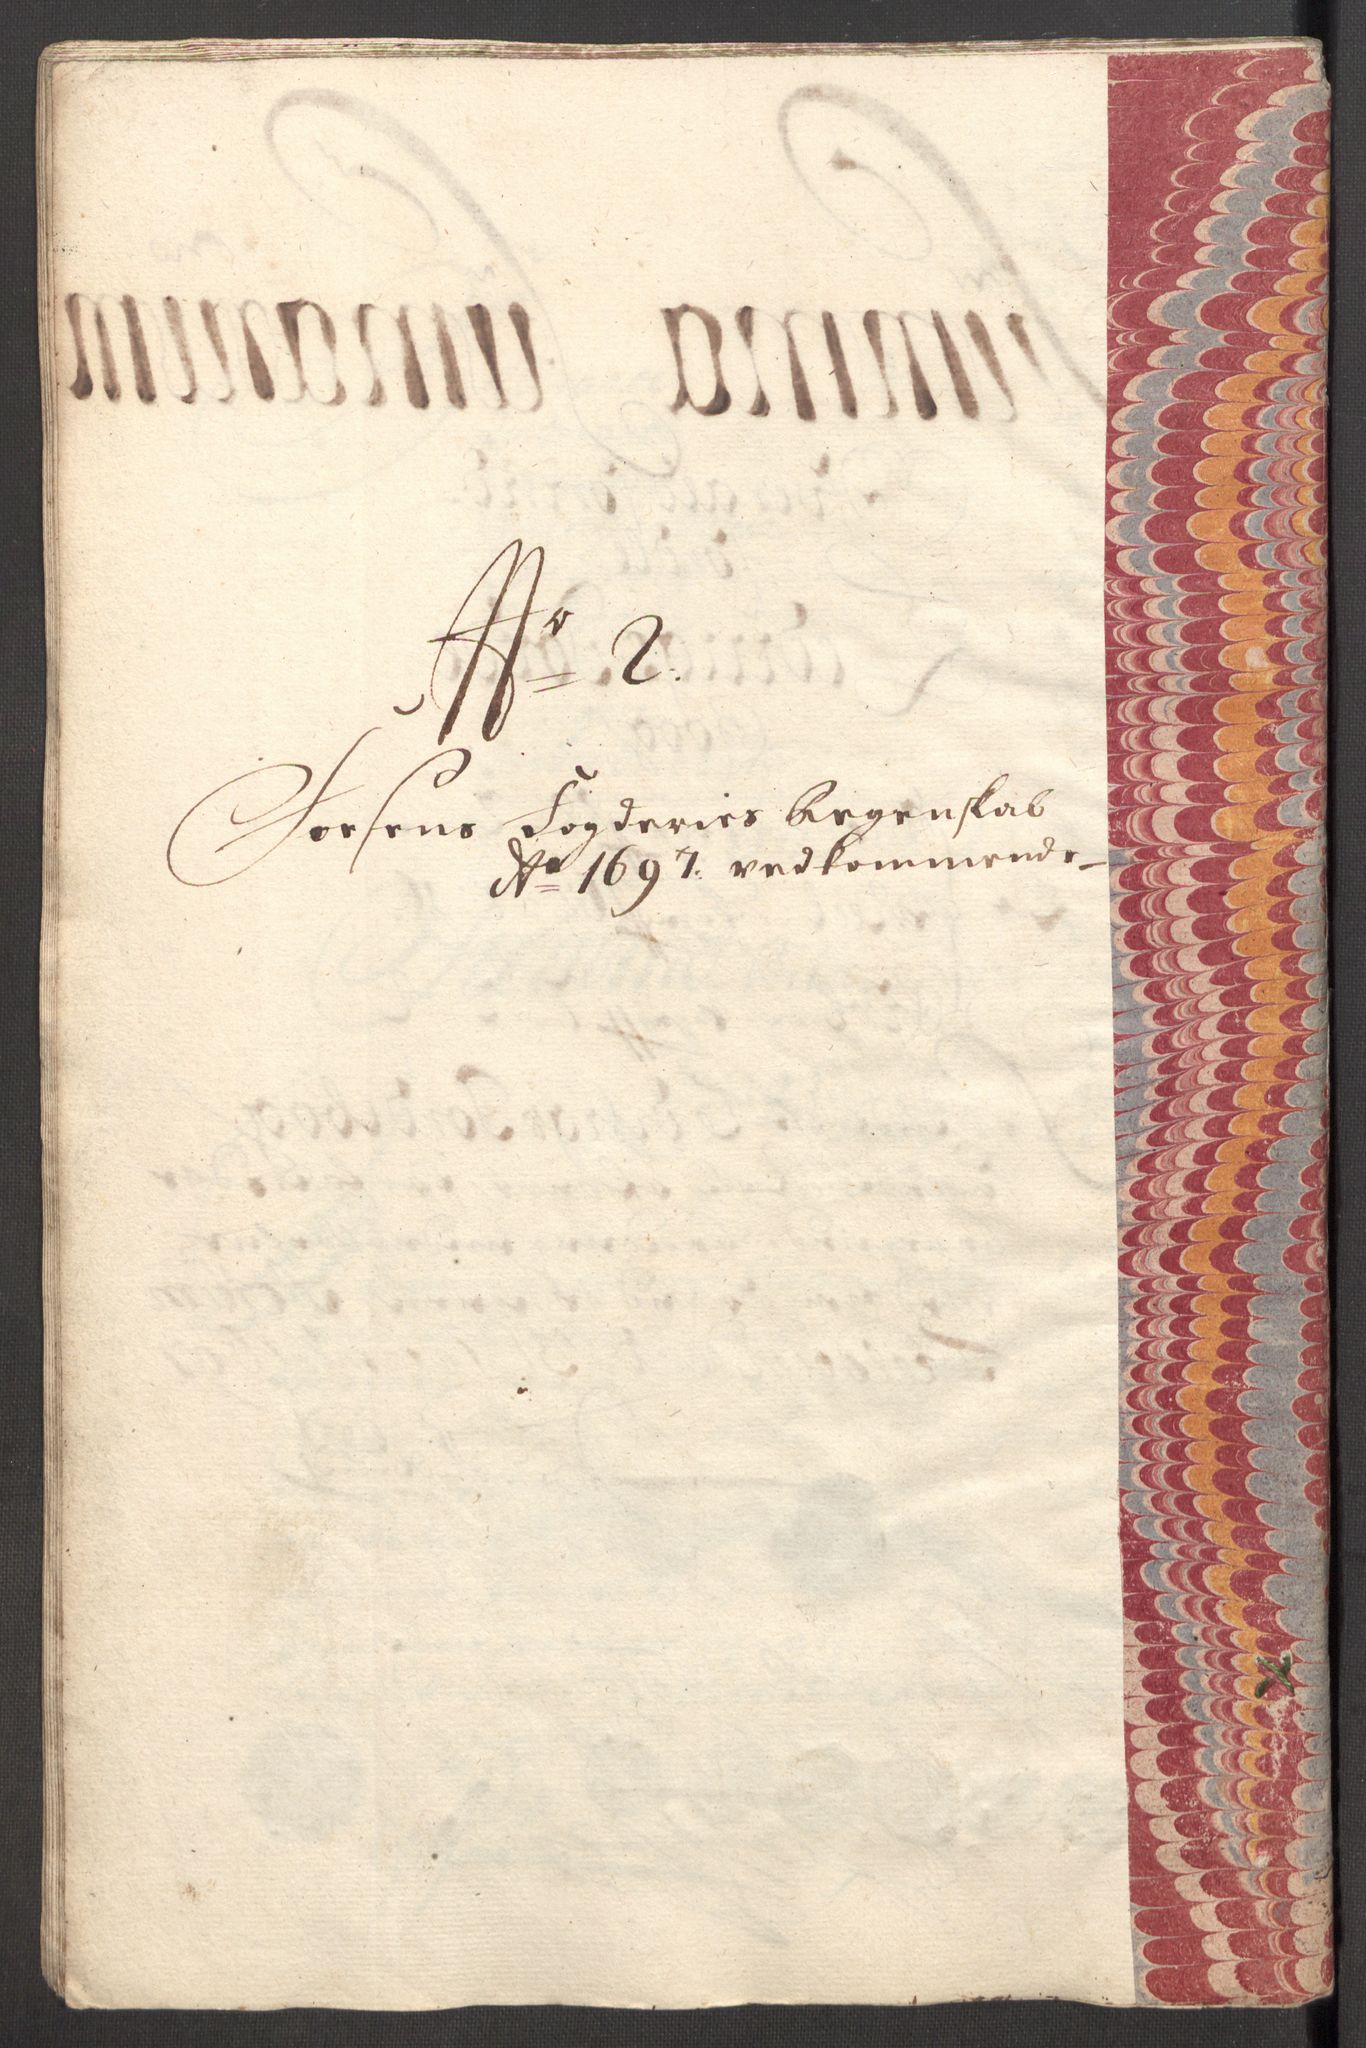 No 2.
Fosens Fogderies Regenskab
Ao 1697. vedkommende